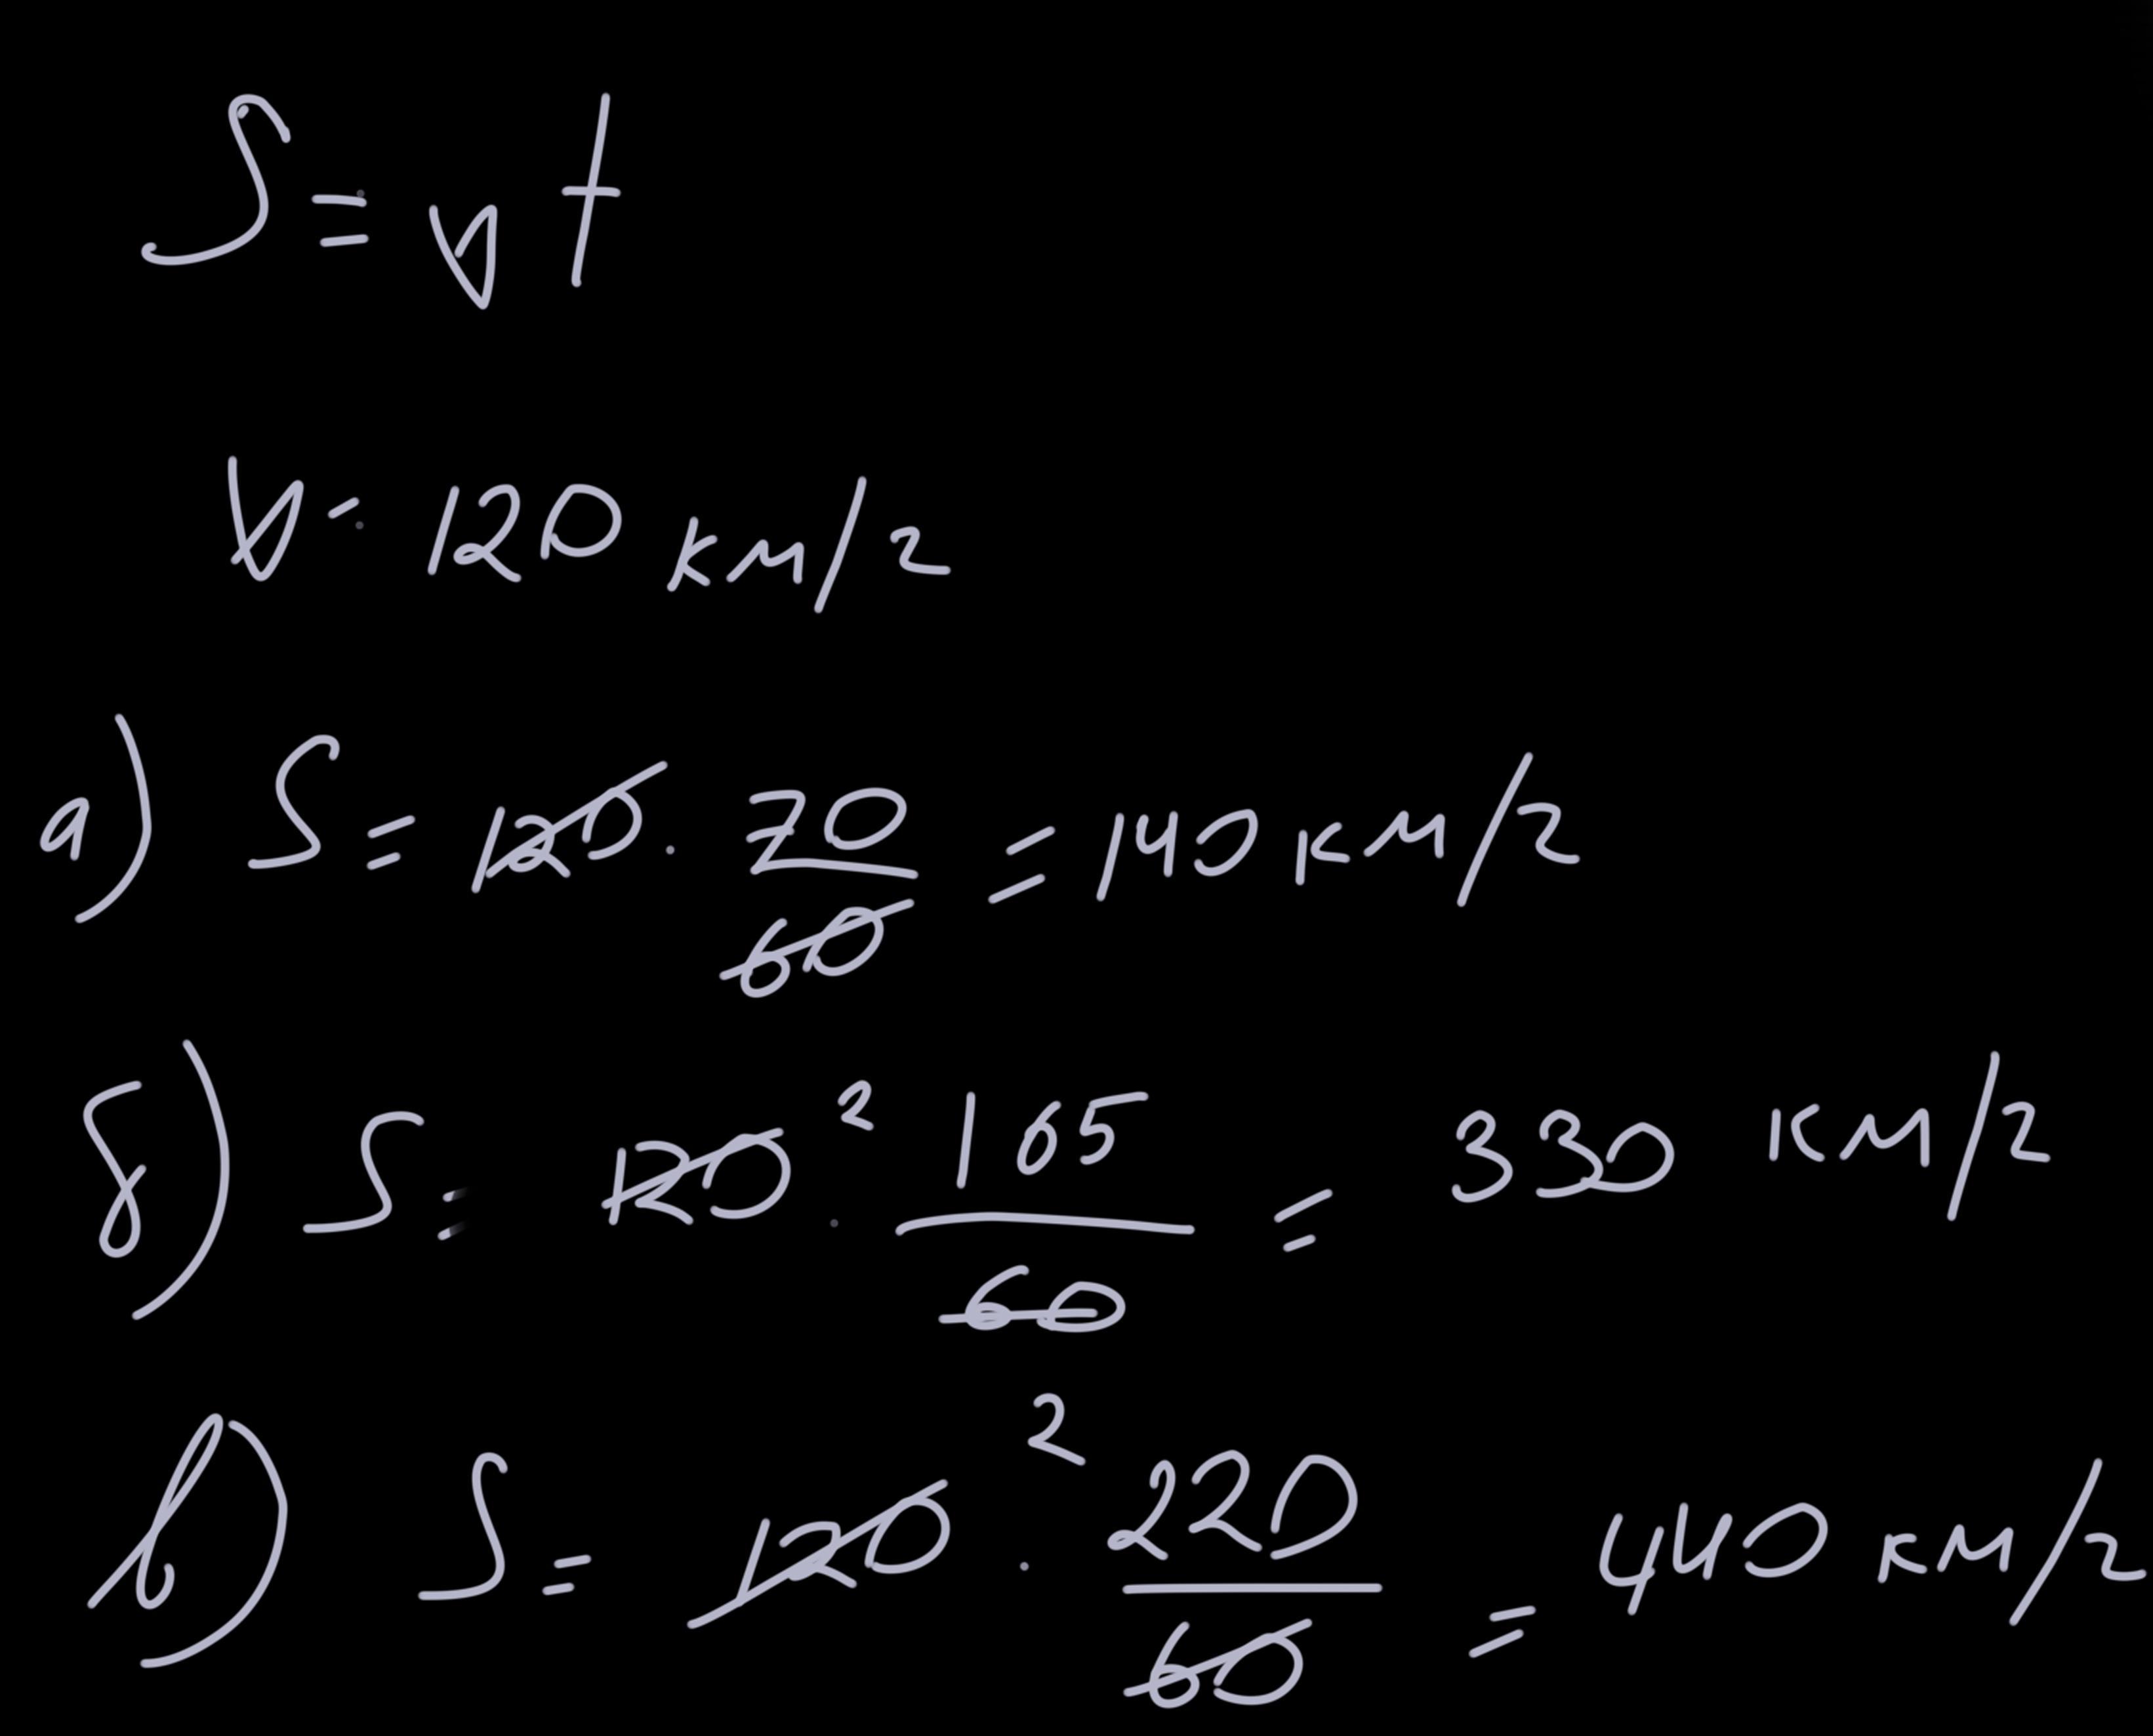 S = v t
v = 120 км/г
а) S = 120 · 70/60 = 140 км/г
б) S = 120 ² · 165/60 = 330 км/г
в) S = 120 ² · 220/60 = 440 км/г